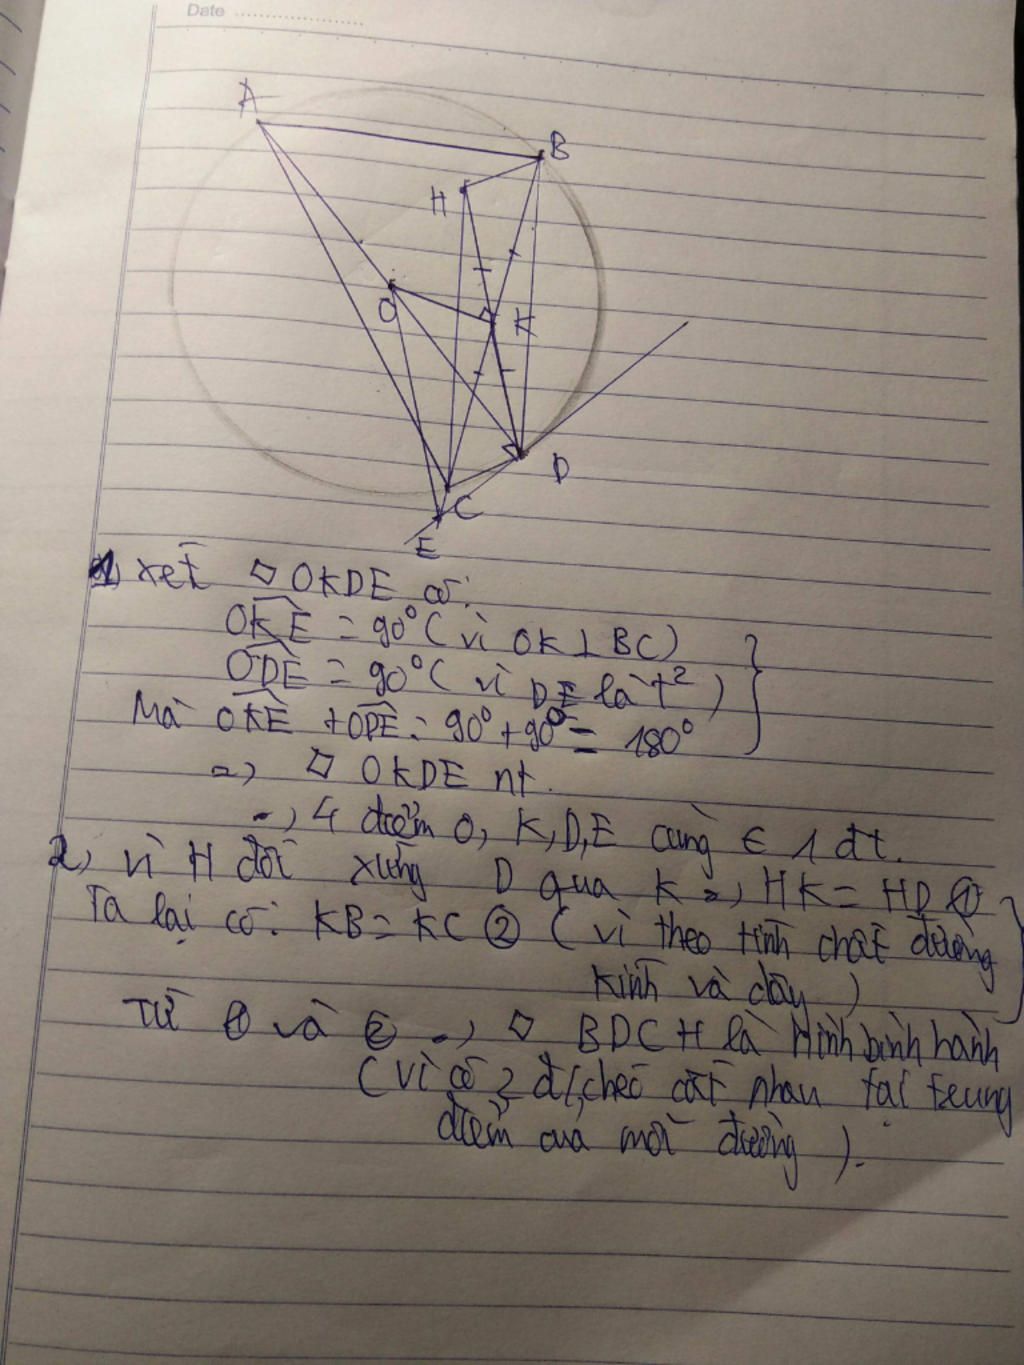 Date
A
B
H
O
K
D
C
E
1, xét ▱ OKDE có:
OKE = 90° ( vì OK ⊥ BC )
ODE = 90° ( vì DE là t² )
Mà OKE + ODE = 90° + 90° = 180°
=> ▱ OKDE nt.
=> 4 điểm O, K, D, E cùng ∈ 1 đt.
2, vì H đối xứng D qua K => HK = HD ①
Ta lại có: KB = KC ② ( vì theo tính chất đường
kính và dây )
Từ ① và ② => ▱ BDCH là hình bình hành
( vì có 2 đ/chéo cắt nhau tại trung
điểm của mỗi đường ).